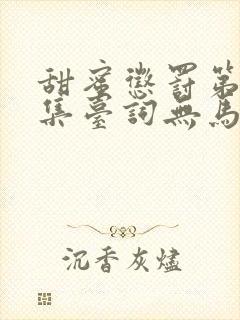 甜蜜懲罰第
集臺詞無馬
沉香灰燼